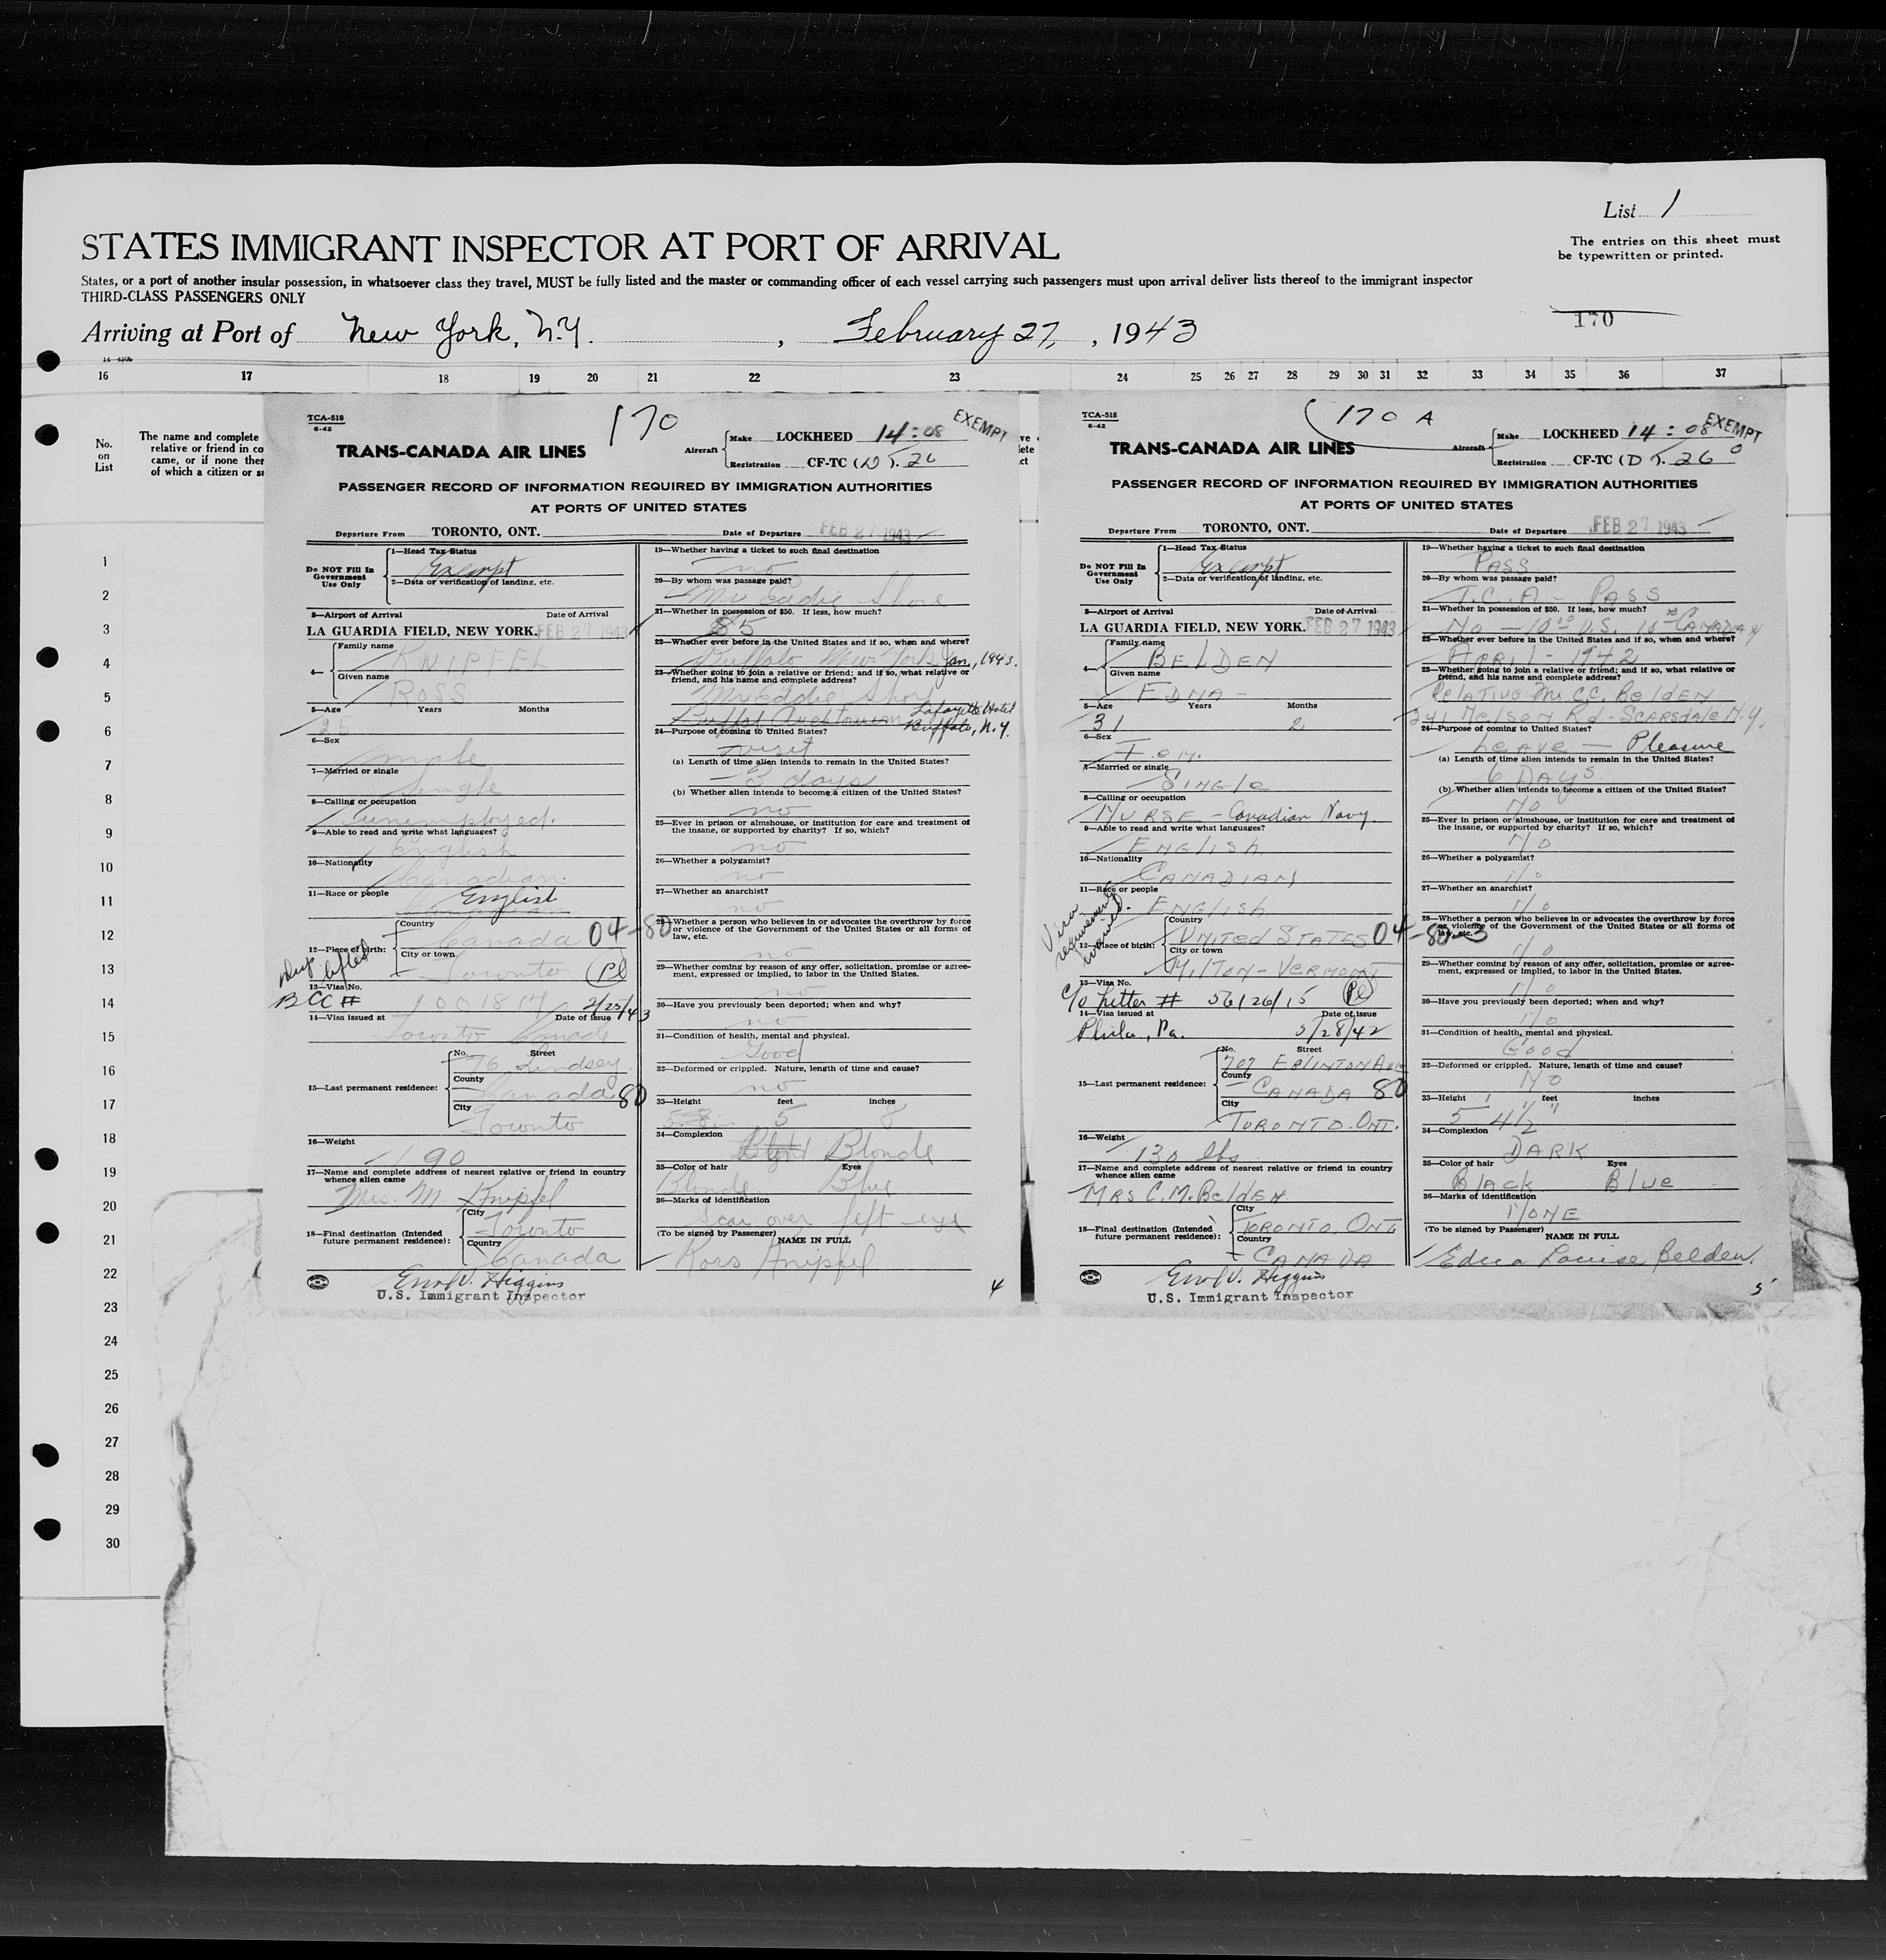 List 1
STATES IMMIGRANT INSPECTOR AT PORT OF ARRIVAL
The entries on this sheet must
be typewritten or printed.
States, or a port of another insular possession, in whatsoever class they travel, MUST be fully listed and the master or commanding officer of each vessel carrying such passengers must upon arrival deliver lists thereof to the immigrant inspector
THIRD-CLASS PASSENGERS ONLY
170
Arriving at Port of New York, N.Y. , February 27, , 1943
16 17 18 19 20 21 22 23 24 25 26 27 28 29 30 31 32 33 34 35 36 37
No.
on
List
The name and complete
relative or friend in co
came, or if none ther
of which a citizen or su
1
2
3
4
5
6
7
8
9
10
11
12
13
14
15
16
17
18
19
20
21
22
23
24
25
26
27
28
29
30
TCA-518
6-42
170
EXEMPT
TRANS-CANADA AIR LINES
Aircraft
Make LOCKHEED 14:08
Registration CF-TC (D T. 26
PASSENGER RECORD OF INFORMATION REQUIRED BY IMMIGRATION AUTHORITIES
AT PORTS OF UNITED STATES
Departure From TORONTO, ONT. Date of Departure FEB 27 1943
Do NOT Fill In
Government
Use Only
1—Head Tax Status
Exempt
2—Data or verification of landing, etc.
3—Airport of Arrival Date of Arrival
LA GUARDIA FIELD, NEW YORK. FEB 27 1943
4— Family name
KNIPFEL
Given name
ROSS
5—Age Years Months
35
6—Sex
male
7—Married or single
single
8—Calling or occupation
unemployed.
9—Able to read and write what languages?
English
10—Nationality
Canadian.
11—Race or people
English
12—Place of birth:
Country
Canada 04-80
City or town
Toronto Pl
lifted
13—Visa No.
BCC# 1001817 2/25/43
14—Visa issued at Date of issue
Toronto Canada
15—Last permanent residence:
No. Street
76 Lindsey
County
Canada 80
City
Toronto
16—Weight
190
17—Name and complete address of nearest relative or friend in country
whence alien came
Mrs. M. Knipfel
18—Final destination (Intended
future permanent residence):
City
Toronto
Country
Canada
Higgins
U.S. Immigrant Inspector
19—Whether having a ticket to such final destination
no
20—By whom was passage paid?
Mr Eddie Shore
21—Whether in possession of $50. If less, how much?
22—Whether ever before in the United States and if so, when and where?
Buffalo New York Jan, 1943.
23—Whether going to join a relative or friend; and if so, what relative or
friend, and his name and complete address?
Mr Eddie Shore
Lafayette Hotel
Buffalo, N.Y.
24—Purpose of coming to United States?
visit
(a) Length of time alien intends to remain in the United States?
3 days
(b) Whether alien intends to become a citizen of the United States?
no
25—Ever in prison or almshouse, or institution for care and treatment of
the insane, or supported by charity? If so, which?
no
26—Whether a polygamist?
no
27—Whether an anarchist?
no
28—Whether a person who believes in or advocates the overthrow by force
or violence of the Government of the United States or all forms of
law, etc.
no
29—Whether coming by reason of any offer, solicitation, promise or agree-
ment, expressed or implied, to labor in the United States.
no
30—Have you previously been deported; when and why?
no
31—Condition of health, mental and physical.
Good
32—Deformed or crippled. Nature, length of time and cause?
no
33—Height feet inches
5 8
34—Complexion
Blond Blonde
35—Color of hair Eyes
Blonde Blue
36—Marks of identification
scar over left eye
(To be signed by Passenger) NAME IN FULL
Ross Knipfel
4
TCA-518
6-42
170 A
EXEMPT
TRANS-CANADA AIR LINES
Aircraft
Make LOCKHEED 14:08
Registration CF-TC (D T. 26
PASSENGER RECORD OF INFORMATION REQUIRED BY IMMIGRATION AUTHORITIES
AT PORTS OF UNITED STATES
Departure From TORONTO, ONT. Date of Departure FEB 27 1943
Do NOT Fill In
Government
Use Only
1—Head Tax Status
Exempt
2—Data or verification of landing, etc.
3—Airport of Arrival Date of Arrival
LA GUARDIA FIELD, NEW YORK. FEB 27 1943
4— Family name
BELDEN
Given name
EDNA -
5—Age Years Months
31 2
6—Sex
Fem.
7—Married or single
Single
8—Calling or occupation
NURSE - Canadian Navy.
9—Able to read and write what languages?
English
10—Nationality
CANADIAN
11—Race or people
ENGLISH
Visa
requirements
waived.
12—Place of birth:
Country
UNITED STATES 04-80-3
City or town
MILTON - VERMONT
13—Visa No.
C/O Letter # 56126/15 Pl
14—Visa issued at Date of issue
Phila, Pa. 5/28/42
15—Last permanent residence:
No. Street
707 EGLINTON AVE
County
CANADA 80
City
TORONTO. ONT.
16—Weight
130 lbs
17—Name and complete address of nearest relative or friend in country
whence alien came
MRS C.M. BelDEN
18—Final destination (Intended
future permanent residence):
City
TORONTO, ONT.
Country
CANADA
Higgins
U.S. Immigrant Inspector
19—Whether having a ticket to such final destination
PASS
20—By whom was passage paid?
T.C.A - PASS
21—Whether in possession of $50. If less, how much?
NO - 10 U.S. 10 CANADIAN
22—Whether ever before in the United States and if so, when and where?
APRIL - 1942
23—Whether going to join a relative or friend; and if so, what relative or
friend, and his name and complete address?
Relative Mr C.C. BelDEN
241 Nelson Rd - SCARSDALE N.Y.
24—Purpose of coming to United States?
Leave — Pleasure
(a) Length of time alien intends to remain in the United States?
6 DAYS.
(b) Whether alien intends to become a citizen of the United States?
NO
25—Ever in prison or almshouse, or institution for care and treatment of
the insane, or supported by charity? If so, which?
NO
26—Whether a polygamist?
NO
27—Whether an anarchist?
NO
28—Whether a person who believes in or advocates the overthrow by force
or violence of the Government of the United States or all forms of
law, etc.
NO
29—Whether coming by reason of any offer, solicitation, promise or agree-
ment, expressed or implied, to labor in the United States.
NO
30—Have you previously been deported; when and why?
NO
31—Condition of health, mental and physical.
Good
32—Deformed or crippled. Nature, length of time and cause?
NO
33—Height feet inches
5' 4½"
34—Complexion
DARK
35—Color of hair Eyes
BLACK Blue
36—Marks of identification
NONE
(To be signed by Passenger) NAME IN FULL
Edna Louise Belden.
5